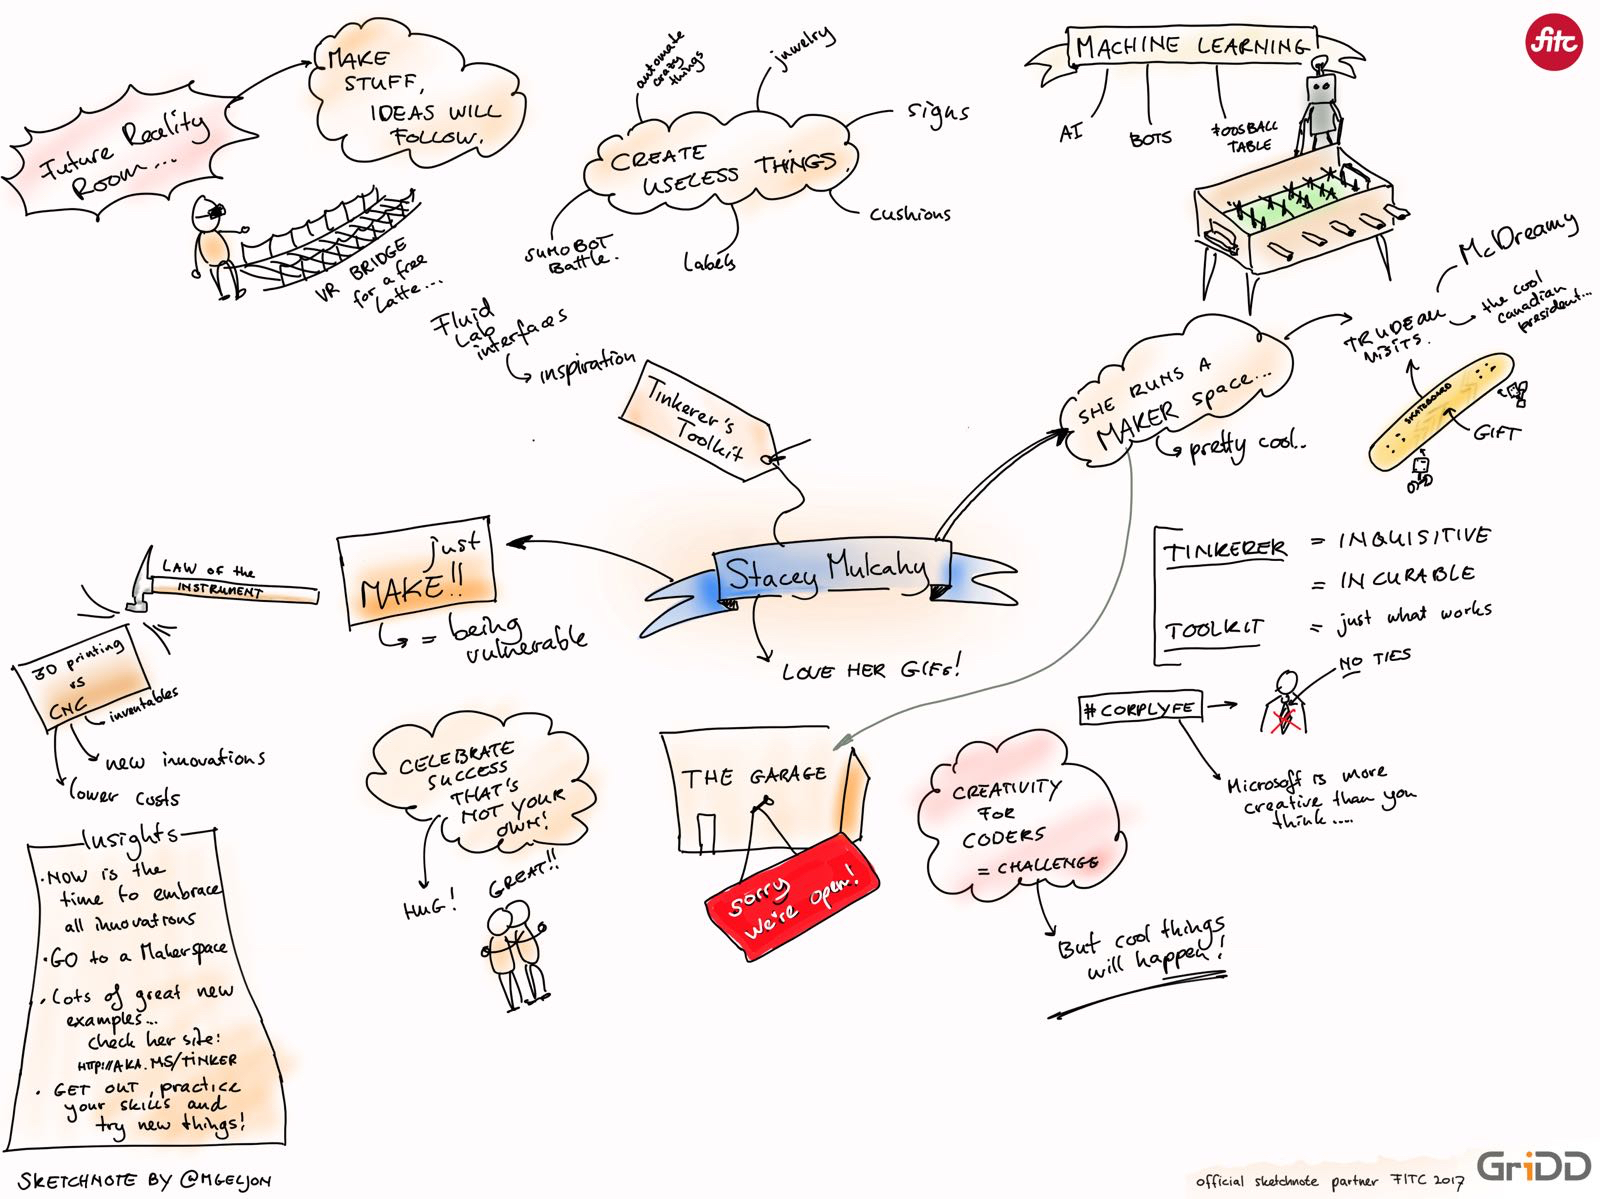 fitc
Future Reality
Room...
MAKE
STUFF,
IDEAS WILL
FOLLOW.
VR BRIDGE
for a free
Latte...
automate
crazy
things
juwelry
signs
CREATE
USELESS THINGS.
cushions
SUMOBOT
Battle.
labels
MACHINE LEARNING
AI
BOTS
FOOSBALL
TABLE
Fluid
Lab
interfaces
inspiration
Tinkerer's
Toolkit
SHE RUNS A
MAKER space...
pretty cool..
TRUDEAU
VISITS.
McDreamy
the cool
canadian
president...
SKATEBOARD
GIFT
Stacey Mulcahy
LOVE HER GIFs!
just
MAKE!!
= being
vulnerable
LAW OF the
INSTRUMENT
3D printing
vs
CNC
inventables
new innovations
lower costs
TINKERER = INQUISITIVE
= INCURABLE
TOOLKIT = just what works
#CORPLYFE
NO TIES
Microsoft is more
creative than you
think....
CELEBRATE
SUCCESS
THAT'S
NOT YOUR
OWN!
HUG!
GREAT!!
THE GARAGE
Sorry
We're open!
CREATIVITY
FOR
CODERS
= CHALLENGE
But cool things
will happen!
Insights
· NOW is the
time to embrace
all innovations
· GO to a Makerspace
· Lots of great new
examples...
check her site:
HTTP://AKA.MS/TINKER
· GET OUT, practice
your skills and
try new things!
SKETCHNOTE BY @MGELJON
official sketchnote partner FITC 2017
GriDD